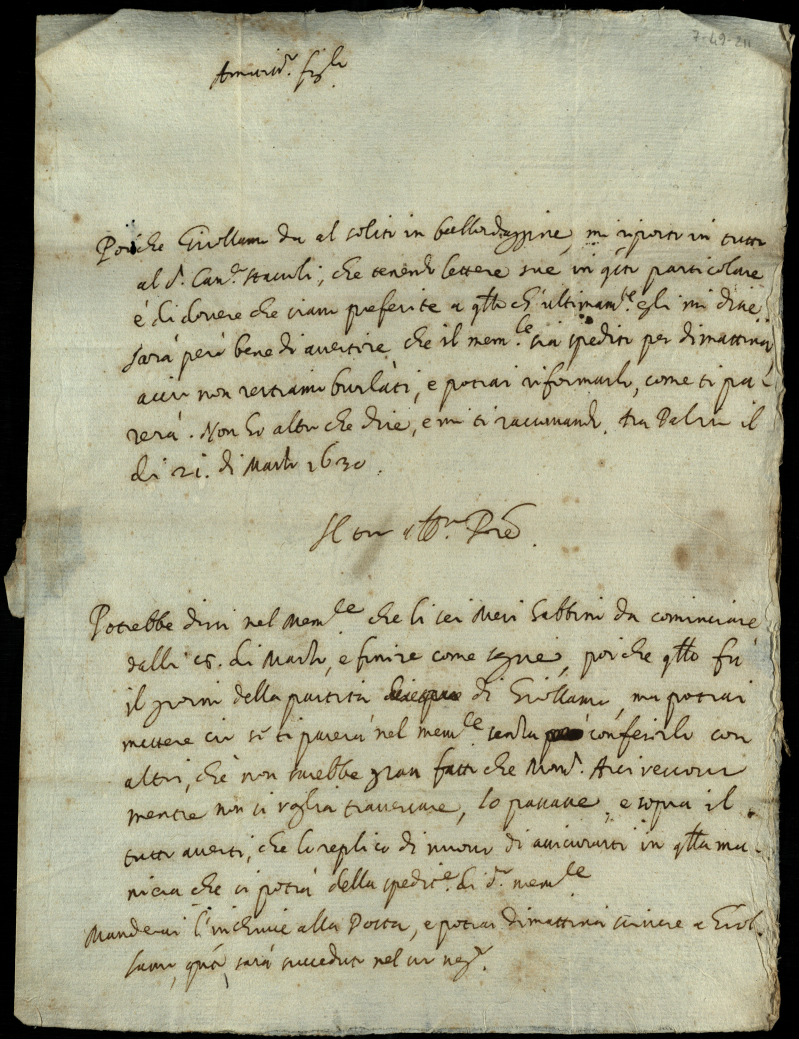 7-49-211
Amatis.r figlo
Poiche Girollamo da al solito in balordaggine, mi riporto in tutto
al S.r Can.co Staculi, che tenendo lettere sue in q.to particolare
é di dovere che siano preferite a q.llo ch'ultimam.te egli mi dice
sará peró bene di avertire, che il mem.le sia spedito per dimattina
accio non restiamo burlati, e potrai riformarlo, come ti pa
rerá. Non ho altro che dire, e mi ti raccomando. Di Palazzo il
di 21. di Marzo 1630.
Il tuo Pre
Potrebbe dirsi nel Mem.le che li sei Mesi s'abbino da cominciare
dalli 15. di Marzo, e finire come segue, poi che q.llo fú
il giorno della partita di Girollamo, ma potrai
mettere ció se ti parerá nel mem.le senza conferirlo con
altri, che non sarebbe gran fatto che Mons.r Arcivescovo
mentre non si voglia traversare, lo passasse, e sopra il
tutto averti, che lo replico di nuovo di assicurarti in q.lla ma-
niera che si potrá della spedit.e di d.o mem.le
Manderai l'inchiuse alla Posta, e potrai dimattina scrivere a Girol-
lamo, q.to sará succeduto nel suo neg.o.